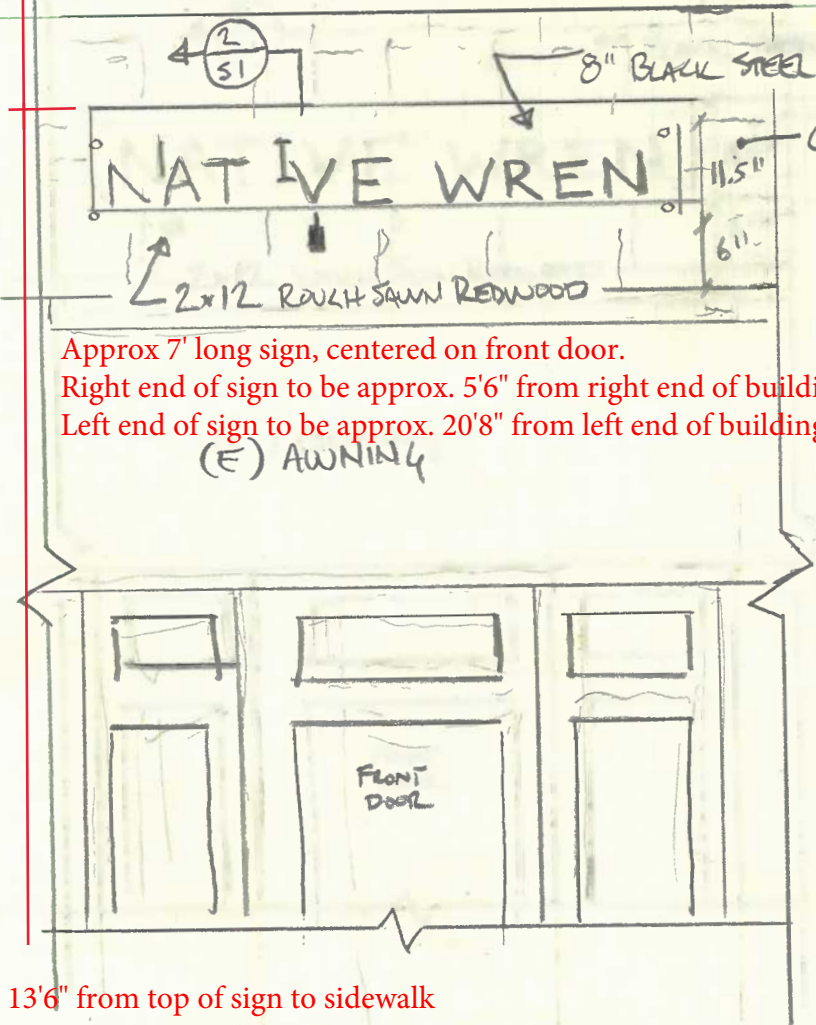 2
S1
8" BLACK STEEL
NATIVE WREN
11.5"
6"
2x12 ROUGH SAWN REDWOOD
Approx 7' long sign, centered on front door.
Right end of sign to be approx. 5'6" from right end of buildi
Left end of sign to be approx. 20'8" from left end of building
(E) AWNING
FRONT
DOOR
13'6" from top of sign to sidewalk